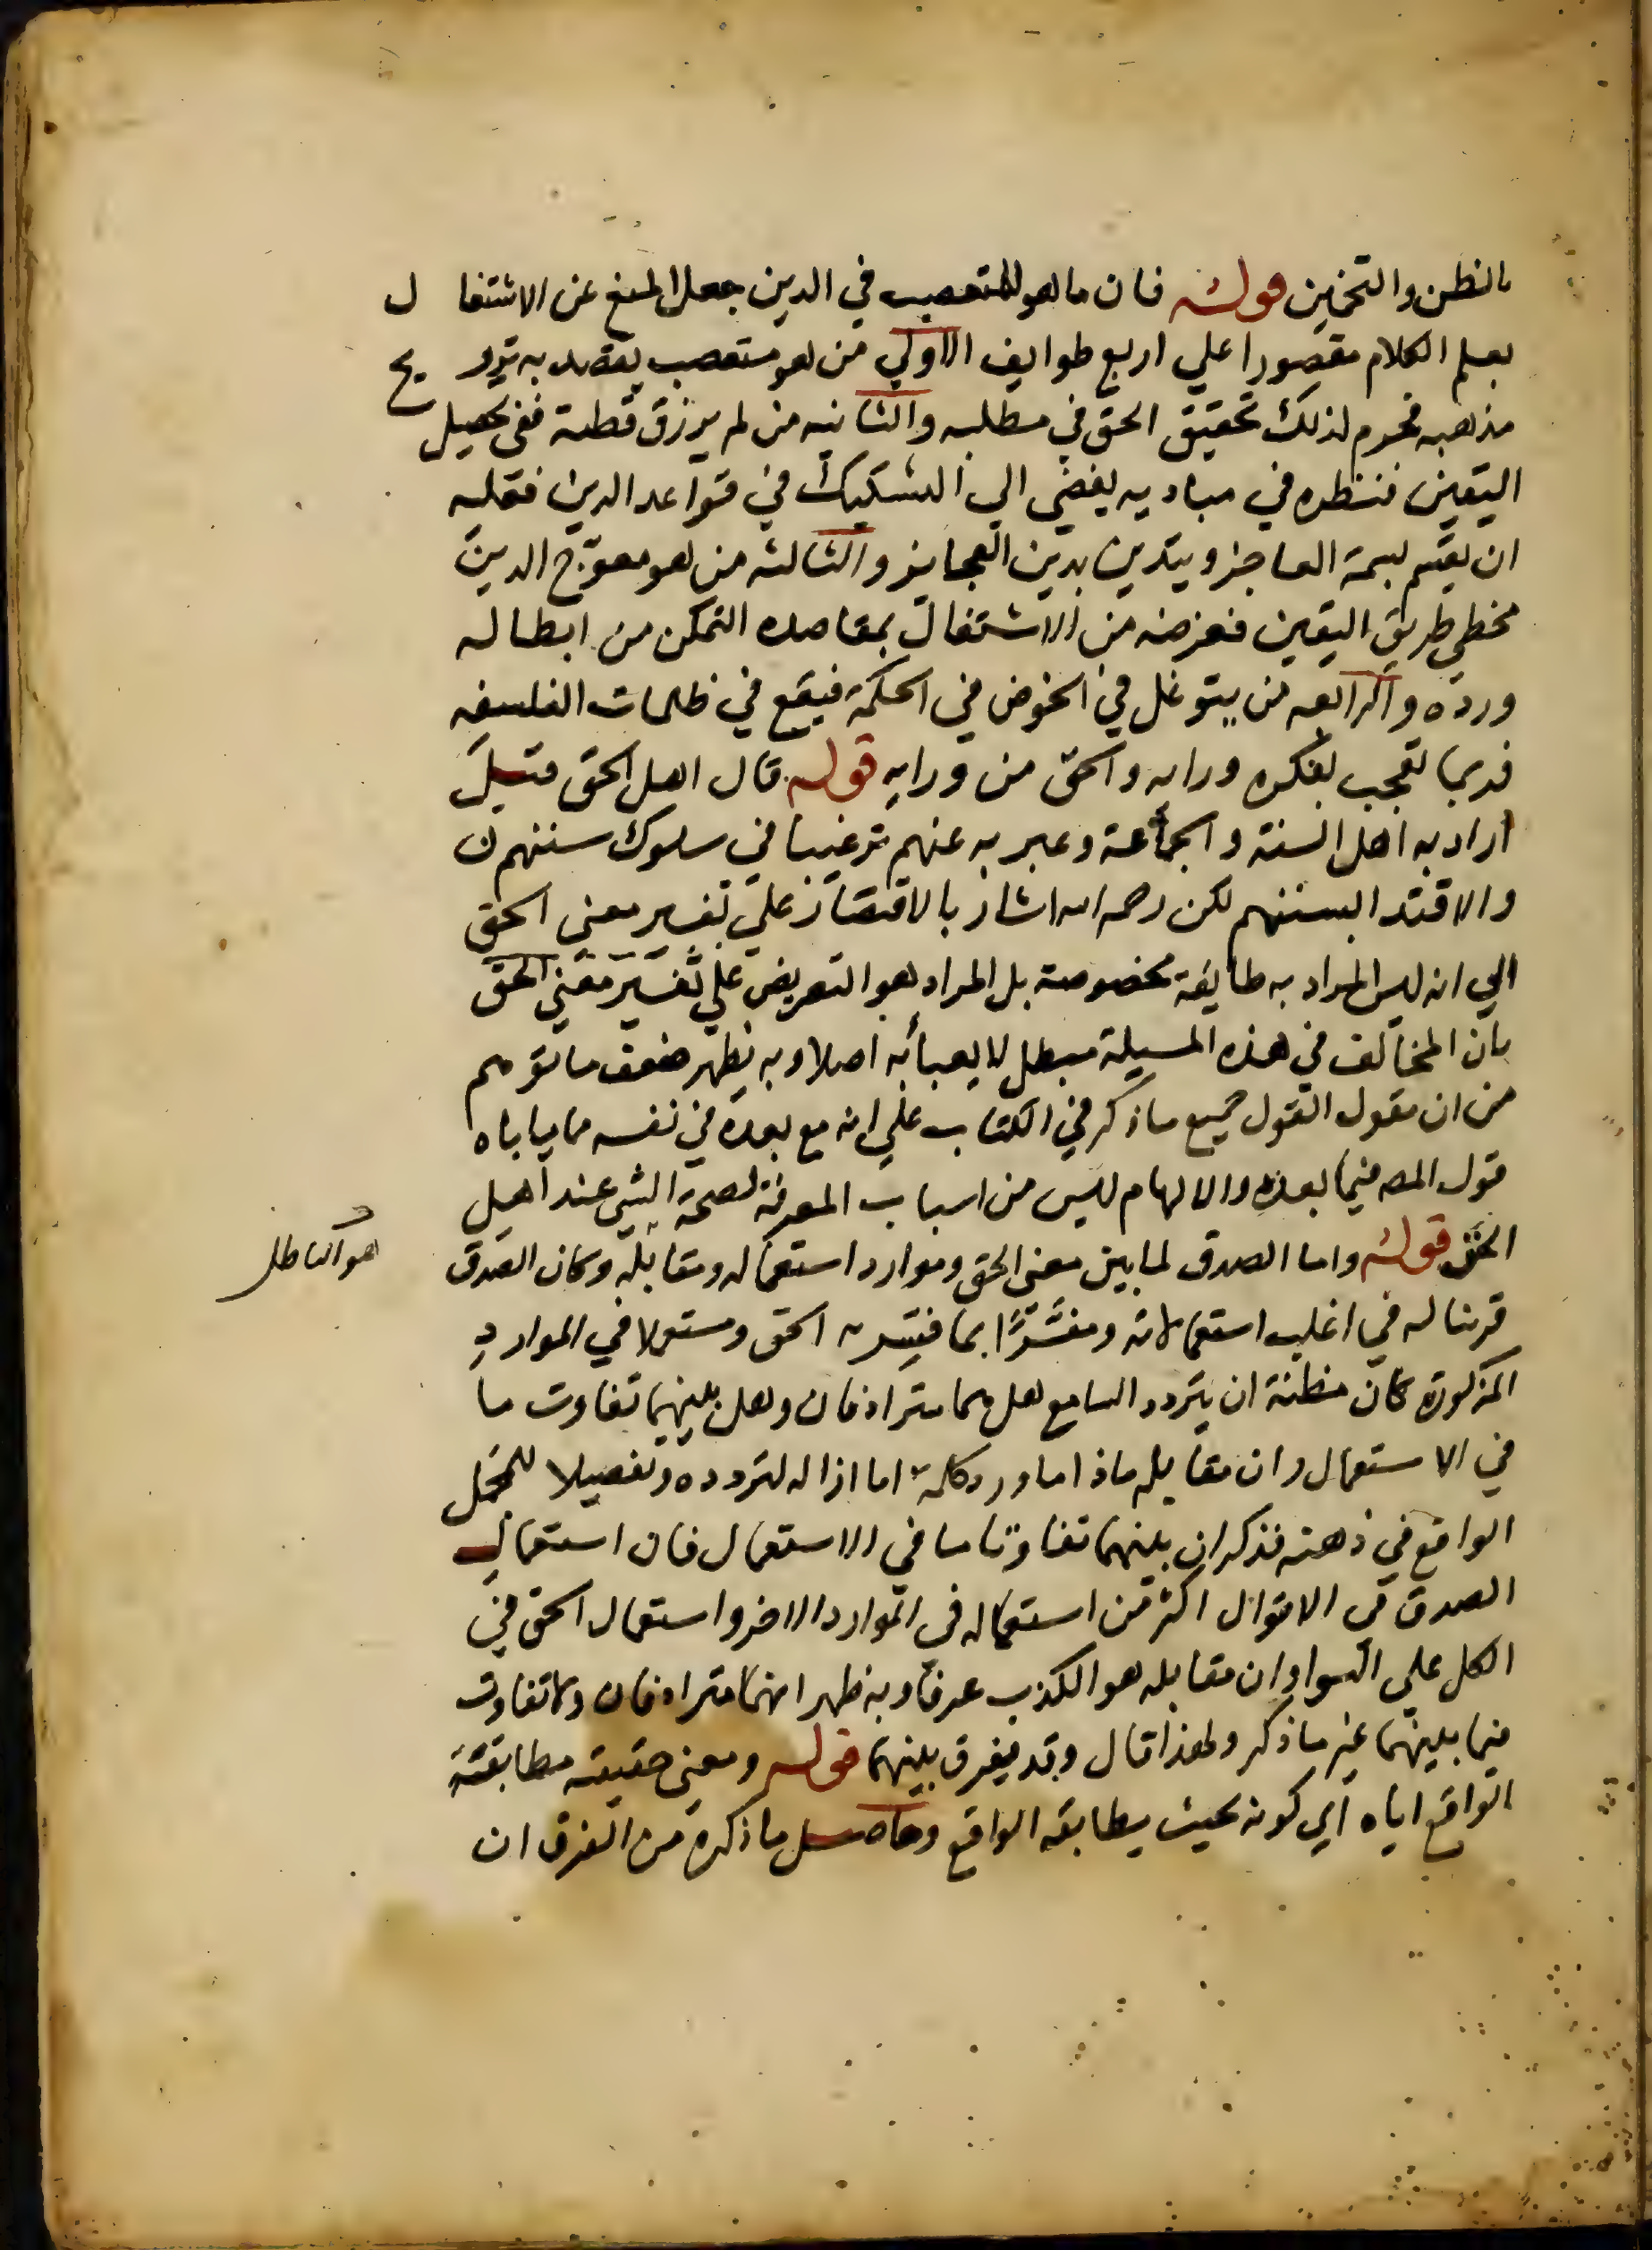 بالظن والتخمين قوله فان ما هو للمتعصب في الدين جعل المنع عن الاشتغال
بعلم الكلام مقصورا علي اربع طوايف الاولي من هو متعصب يقصد به ترويج
مذهبه فحرم لذلك تحقيق الحق في مطلبه والثانيه من لم يرزق فطنة ففي تحصيل
اليقين فنظره في مباديه يفضي الي التشكيك في قواعد الدين فعليه
ان يقيم بسمة العاجز ويتدين بدين العجايز والثالثه من هو معوج الدين
مخطي طريق اليقين فغرضه من الاشتغال بمقاصده التمكن من ابطاله
ورده والرابعه من يتوغل في الخوض في الحكمة فيقع في ظلمات الفلسفه
فربما تعجب بفكره ورايه والحق من ورايه قوله قال اهل الحق قيل
اراد به اهل السنة والجماعة وعبر به عنهم ترغيبا في سلوك سننهم
والاقتدا بسننهم لكن رحمه الله اشار بالاقتصار علي تفسير معني الحق
الي انه ليس المراد به طايفة مخصوصة بل المراد هو التعريض علي تفسير معني الحق
بان المخالف في هذه المسيلة مبطل لا يعبأ به اصلا وبه يظهر ضعف ما توهم
من ان مقول القول جميع ما ذكر في الكتاب علي انه مع بعده في نفسه مما ياباه
قول المصه فيما بعده والالهام ليس من اسباب المعرفة لصحة الشي عند اهل
الحق قوله واما الصدق لما بين معني الحق وموارد استعماله ومقابله وكان الصدق
هو الباطل
قرينا له في اغلب استعمالاته ومفسَّرًا بما فسر به الحق ومستعملا في الموارد
المذكورة كان مظنة ان يتردد السامع هل هما مترادفان وهل بينهما تفاوت ما
في الاستعمال وان مقابله ماذا اما ورد كلمة اما ازاله لتردده وتفصيلا للمجمل
الواقع في ذهنه فذكر ان بينهما تفاوتا ما في الاستعمال فان استعمال
الصدق في الاقوال اكثر من استعماله في الموارد الاخر واستعمال الحق في
الكل علي السوا وان مقابله هو الكذب عرفا وبه ظهر انهما مترادفان ولا تفاوت
فيما بينهما غير ما ذكر ولهذا قال وقد يفرق بينهما قوله ومعني حقيقته مطابقة
الواقع اياه اي كونه بحيث يطابقه الواقع وحاصل ما ذكره من الفرق ان